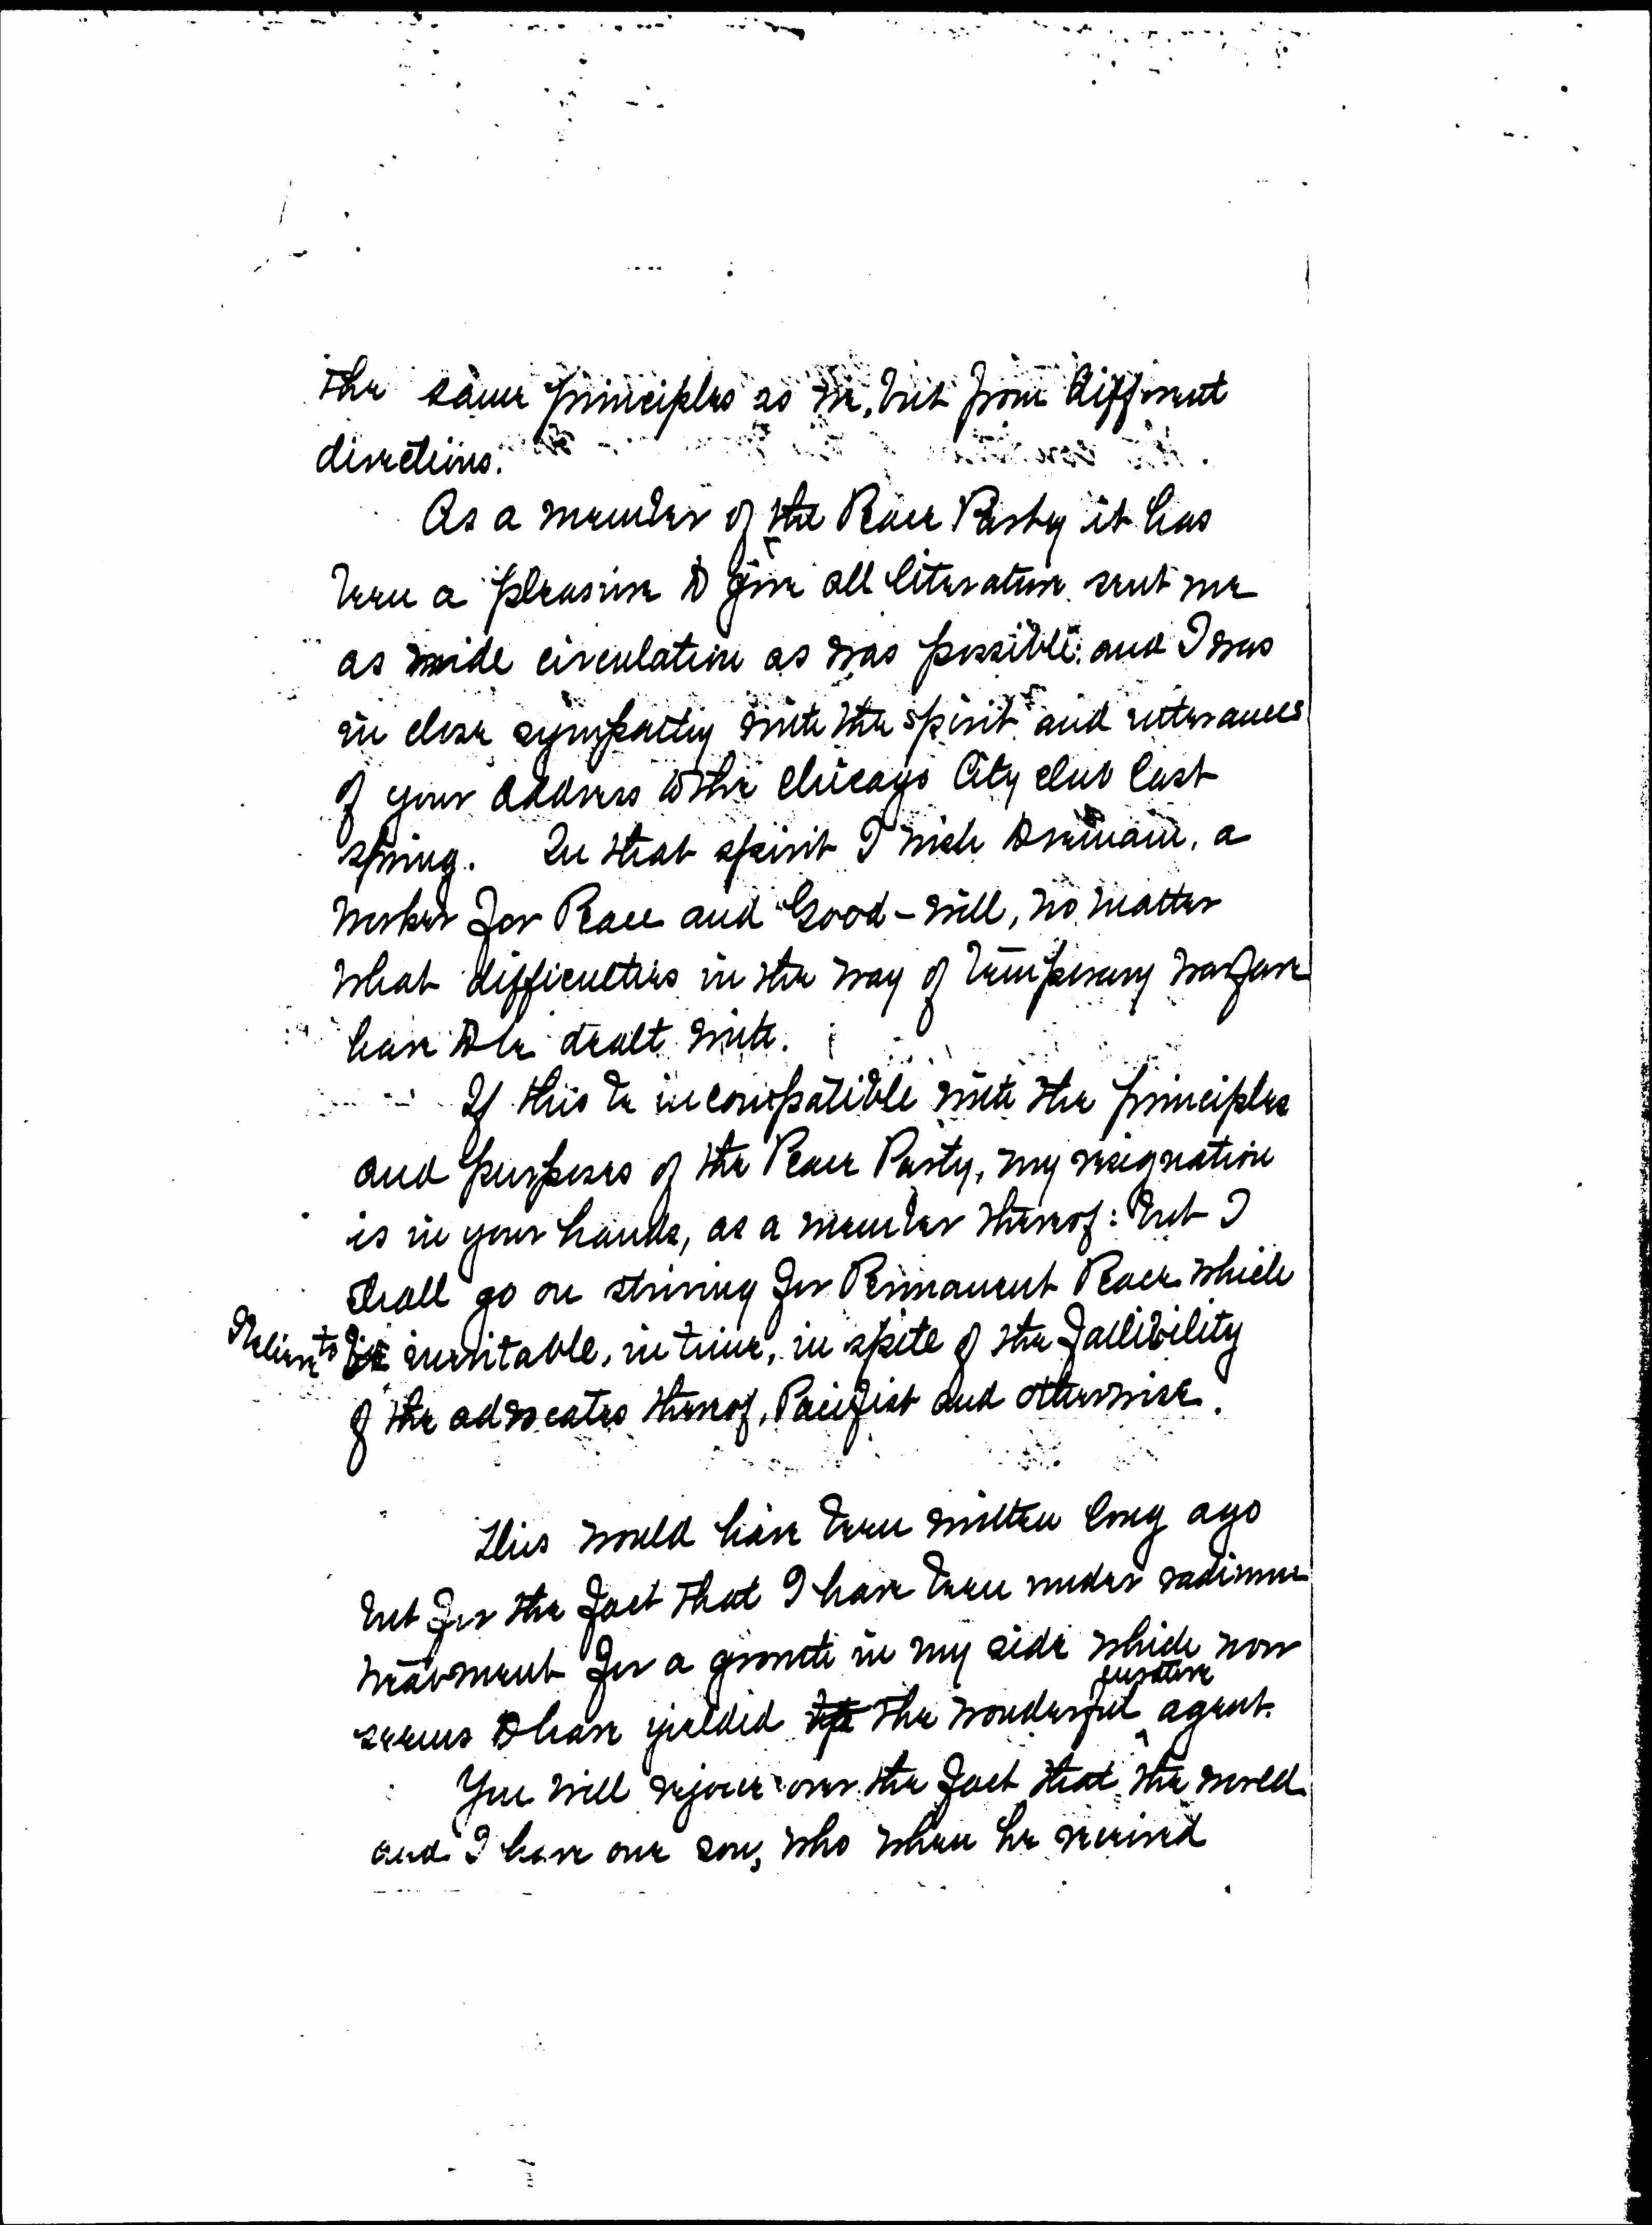 the same principles as we, but from different
directions.
As a member of the Peace Party it has
been a pleasure to give all literature sent me
as wide circulation as was possible: and I was
in close sympathy with the spirit and utterances
of your address to the Chicago City club last
spring. In that spirit I wish to remain, a
worker for Peace and Good-will, no matter
what difficulties in the way of temporary warfare
have to be dealt with.
If this be incompatible with the principles
and purposes of the Peace Party, my resignation
is in your hands, as a member thereof: but I
shall go on striving for Permanent Peace which
I believe to be inevitable, in time, in spite of the fallibility
of the advocates thereof, Pacifist and otherwise.
This would have been written long ago
but for the fact that I have been under radium
treatment for a growth in my side which now
seems to have yielded to the wonderful curative agent.
You will rejoice over the fact that the world
and I have one son, who when he received